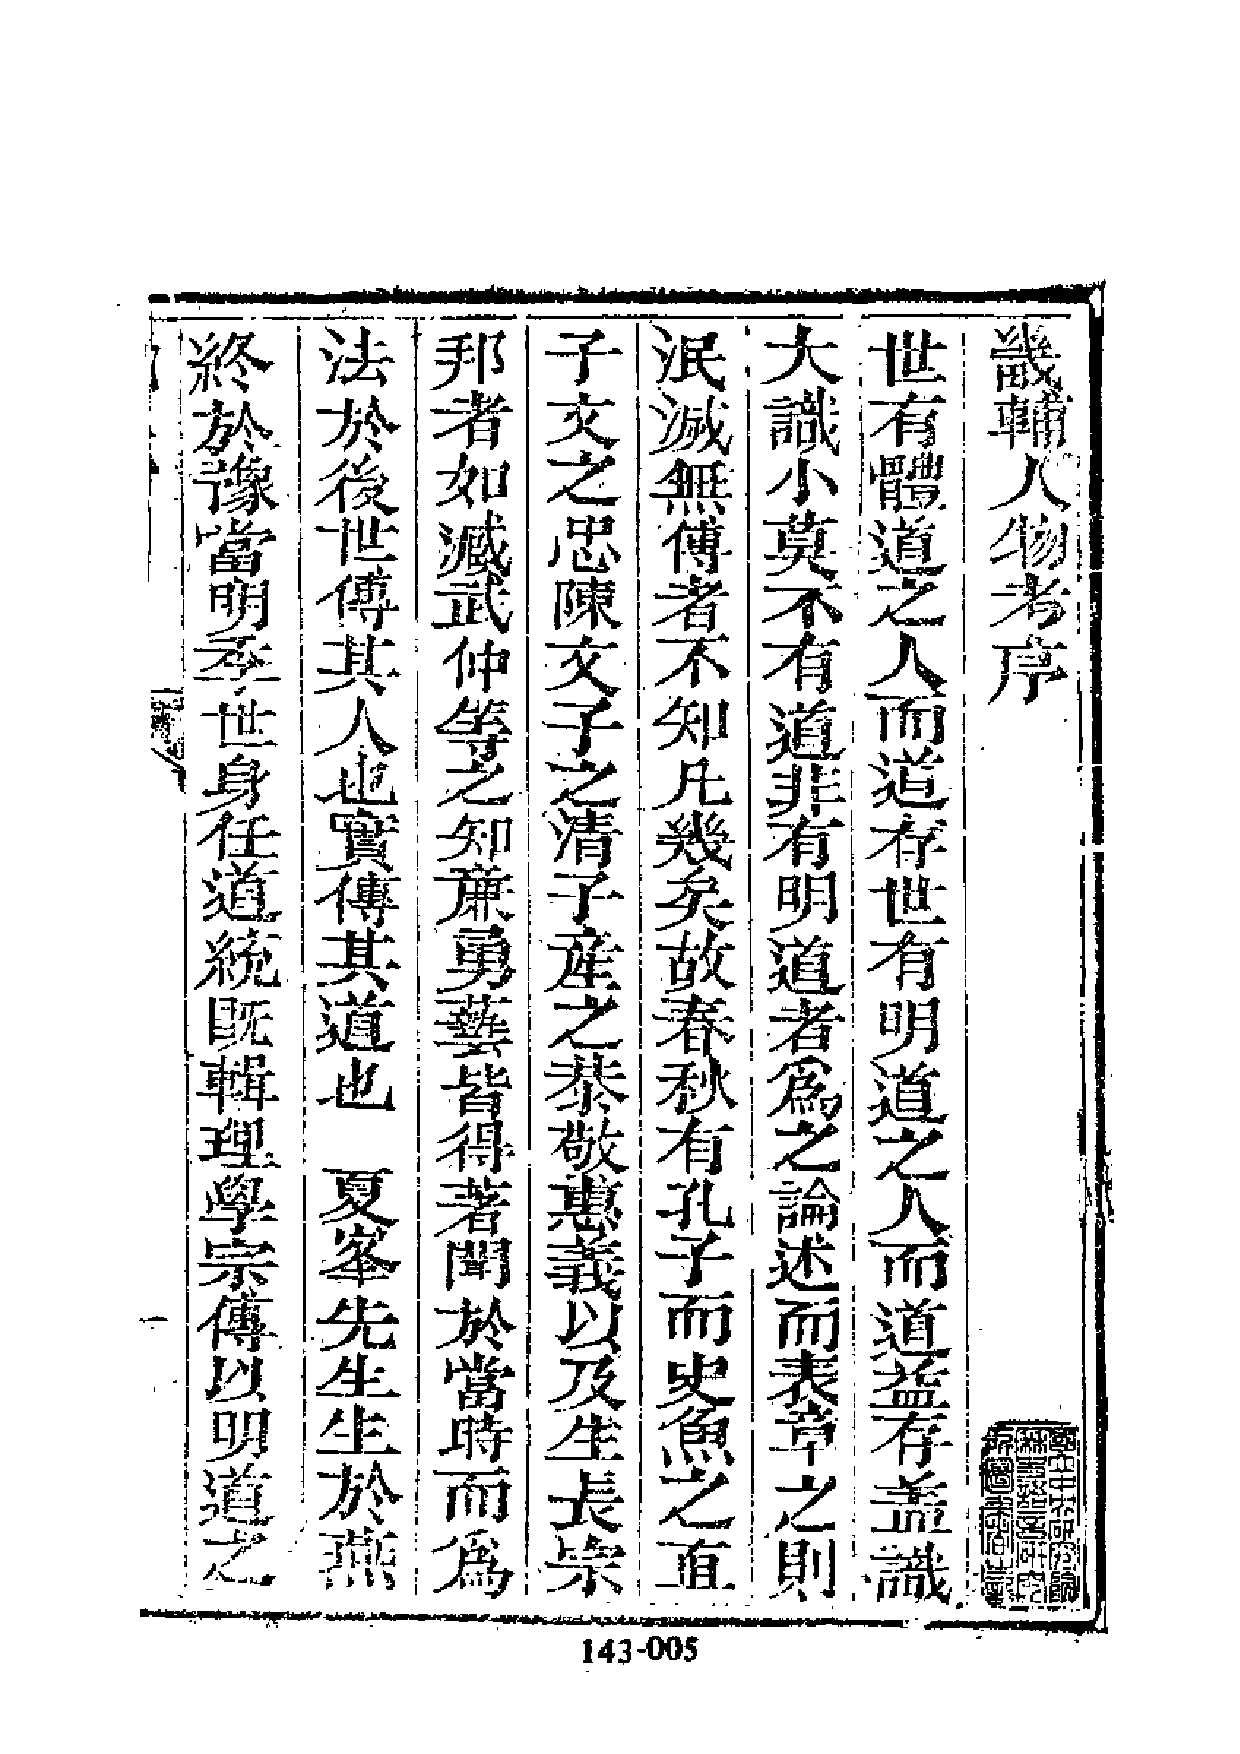 畿輔人物考序
世有體道之人而道存世有明道之人而道益存盖識
大識小莫不有道非有明道者為之論述而表章之則
泯滅無傳者不知凡幾矣故春秋有孔子而史魚之直
子文之忠陳文子之清子産之恭敬惠義以及生長宗
邦者如臧武仲等之知亷勇藝皆得著聞於當時而為
法於後世傳其人也實傳其道也　夏峯先生生於燕
終於豫當明季世身任道統既輯理學宗傳以明道之
143-005